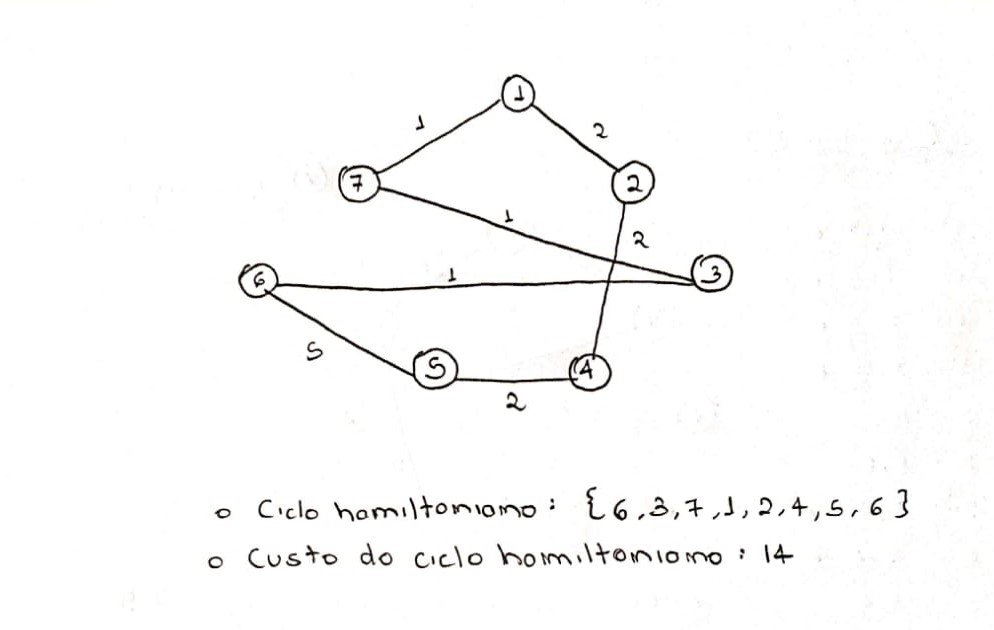 1
1
2
7
2
1
2
3
6
1
5
5
4
2
○ Ciclo hamiltoniano: {6,3,7,1,2,4,5,6}
○ Custo do ciclo hamiltoniano: 14